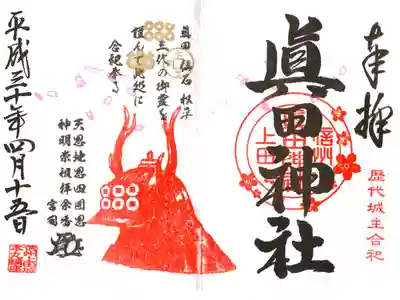 奉拝
歴代城主合祀
眞田神社
信州
上田
眞田 仙石 松平
三代の御霊を
謹んで此処に
合祀奉る
天恩地恩四囲恩
神明崇祖拝余香
宮司
平成三十年四月十五日